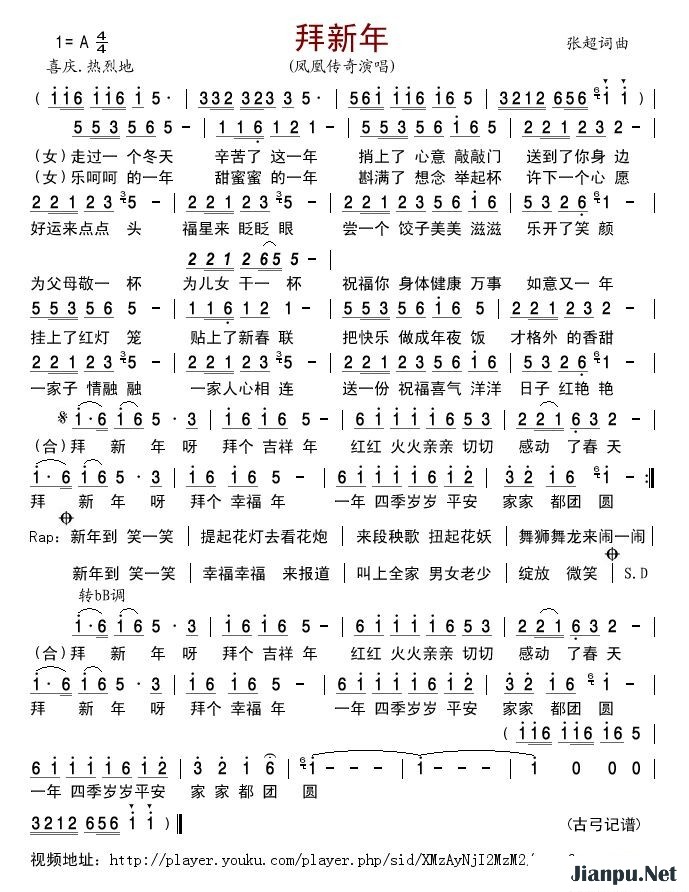 拜新年
1= A 4/4
张超词曲
喜庆.热烈地
(凤凰传奇演唱)
( i i i 6 i 6 i 5 · | 3 3 2 3 2 3 3 5 · | 5 6 i i i i i 6 5 | 3 2 1 2 6 5 6 i i ) |
5 5 3 5 6 5 - | 1 1 6 1 2 1 - | 5 5 3 5 6 5 6 i 6 5 | 2 2 1 2 3 2 - |
(女)走过一 个冬天 辛苦了 这一年 捎上了 心意 敲敲门 送到了你身 边
(女)乐呵呵 的一年 甜蜜蜜 的一年 斟满了 想念 举起杯 许下一个心 愿
2 2 1 2 3 5 - | 2 2 1 2 3 5 - | 2 2 1 2 3 5 5 6 i 6 | 5 5 3 2 6 5 - |
好运来点点 头 福星来 眨眨 眼 尝一个 饺子美美 滋滋 乐开了笑 颜
2 2 1 2 6 5 5 - |
为父母敬一 杯 为儿女 干一 杯 祝福你 身体健康 万事 如意又一 年
5 5 3 5 6 5 - | 1 1 6 1 2 1 - | 5 5 3 5 6 5 6 i 6 5 | 2 2 1 2 3 2 - |
挂上了红灯 笼 贴上了新春 联 把快乐 做成年夜 饭 才格外 的香甜
2 2 1 2 3 5 - | 2 2 1 2 3 5 - | 2 2 1 2 3 5 5 6 i 6 | 5 5 3 2 i - |
一家子 情融 融 一家人心相 连 送一份 祝福喜气 洋洋 日子 红艳 艳
i · 6 i 6 5 · 3 | i 6 i 6 5 - | 6 i i i i 6 5 3 | 2 2 1 6 3 2 - |
(合)拜 新 年 呀 拜个 吉祥 年 红红 火火亲亲 切切 感动 了春 天
i · 6 i 6 5 · 3 | i 6 i 6 5 - | 6 i i i i 6 i 2 | 3 2 i 6 i - :‖
拜 新 年 呀 拜个 幸福 年 一年 四季岁岁 平安 家家 都团 圆
Rap: 新年到 笑一笑 | 提起花灯去看花炮 | 来段秧歌 扭起花妖 | 舞狮舞龙来闹一闹 |
新年到 笑一笑 | 幸福幸福 来报道 | 叫上全家 男女老少 | 绽放 微笑 | S.D
转bB调
i · 6 i 6 5 · 3 | i 6 i 6 5 - | 6 i i i i 6 5 3 | 2 2 1 6 3 2 - |
(合)拜 新 年 呀 拜个 吉祥 年 红红 火火亲亲 切切 感动 了春 天
i · 6 i 6 5 · 3 | i 6 i 6 5 - | 6 i i i i 6 i 2 | 3 2 i 6 i - |
拜 新 年 呀 拜个 幸福 年 一年 四季岁岁 平安 家家 都团 圆
( i i i 6 i i i 6 i 6 5
6 i i i i 6 i 2 | 3 2 i 6 | i - - - | i - - - | i 0 0 0 |
一年 四季岁岁平安 家 家 都 团 圆
3 2 1 2 6 5 6 i i ) ‖
(古弓记谱)
视频地址: http://player.youku.com/player.php/sid/XMzAyNjI2MzM2
Jianpu.Net